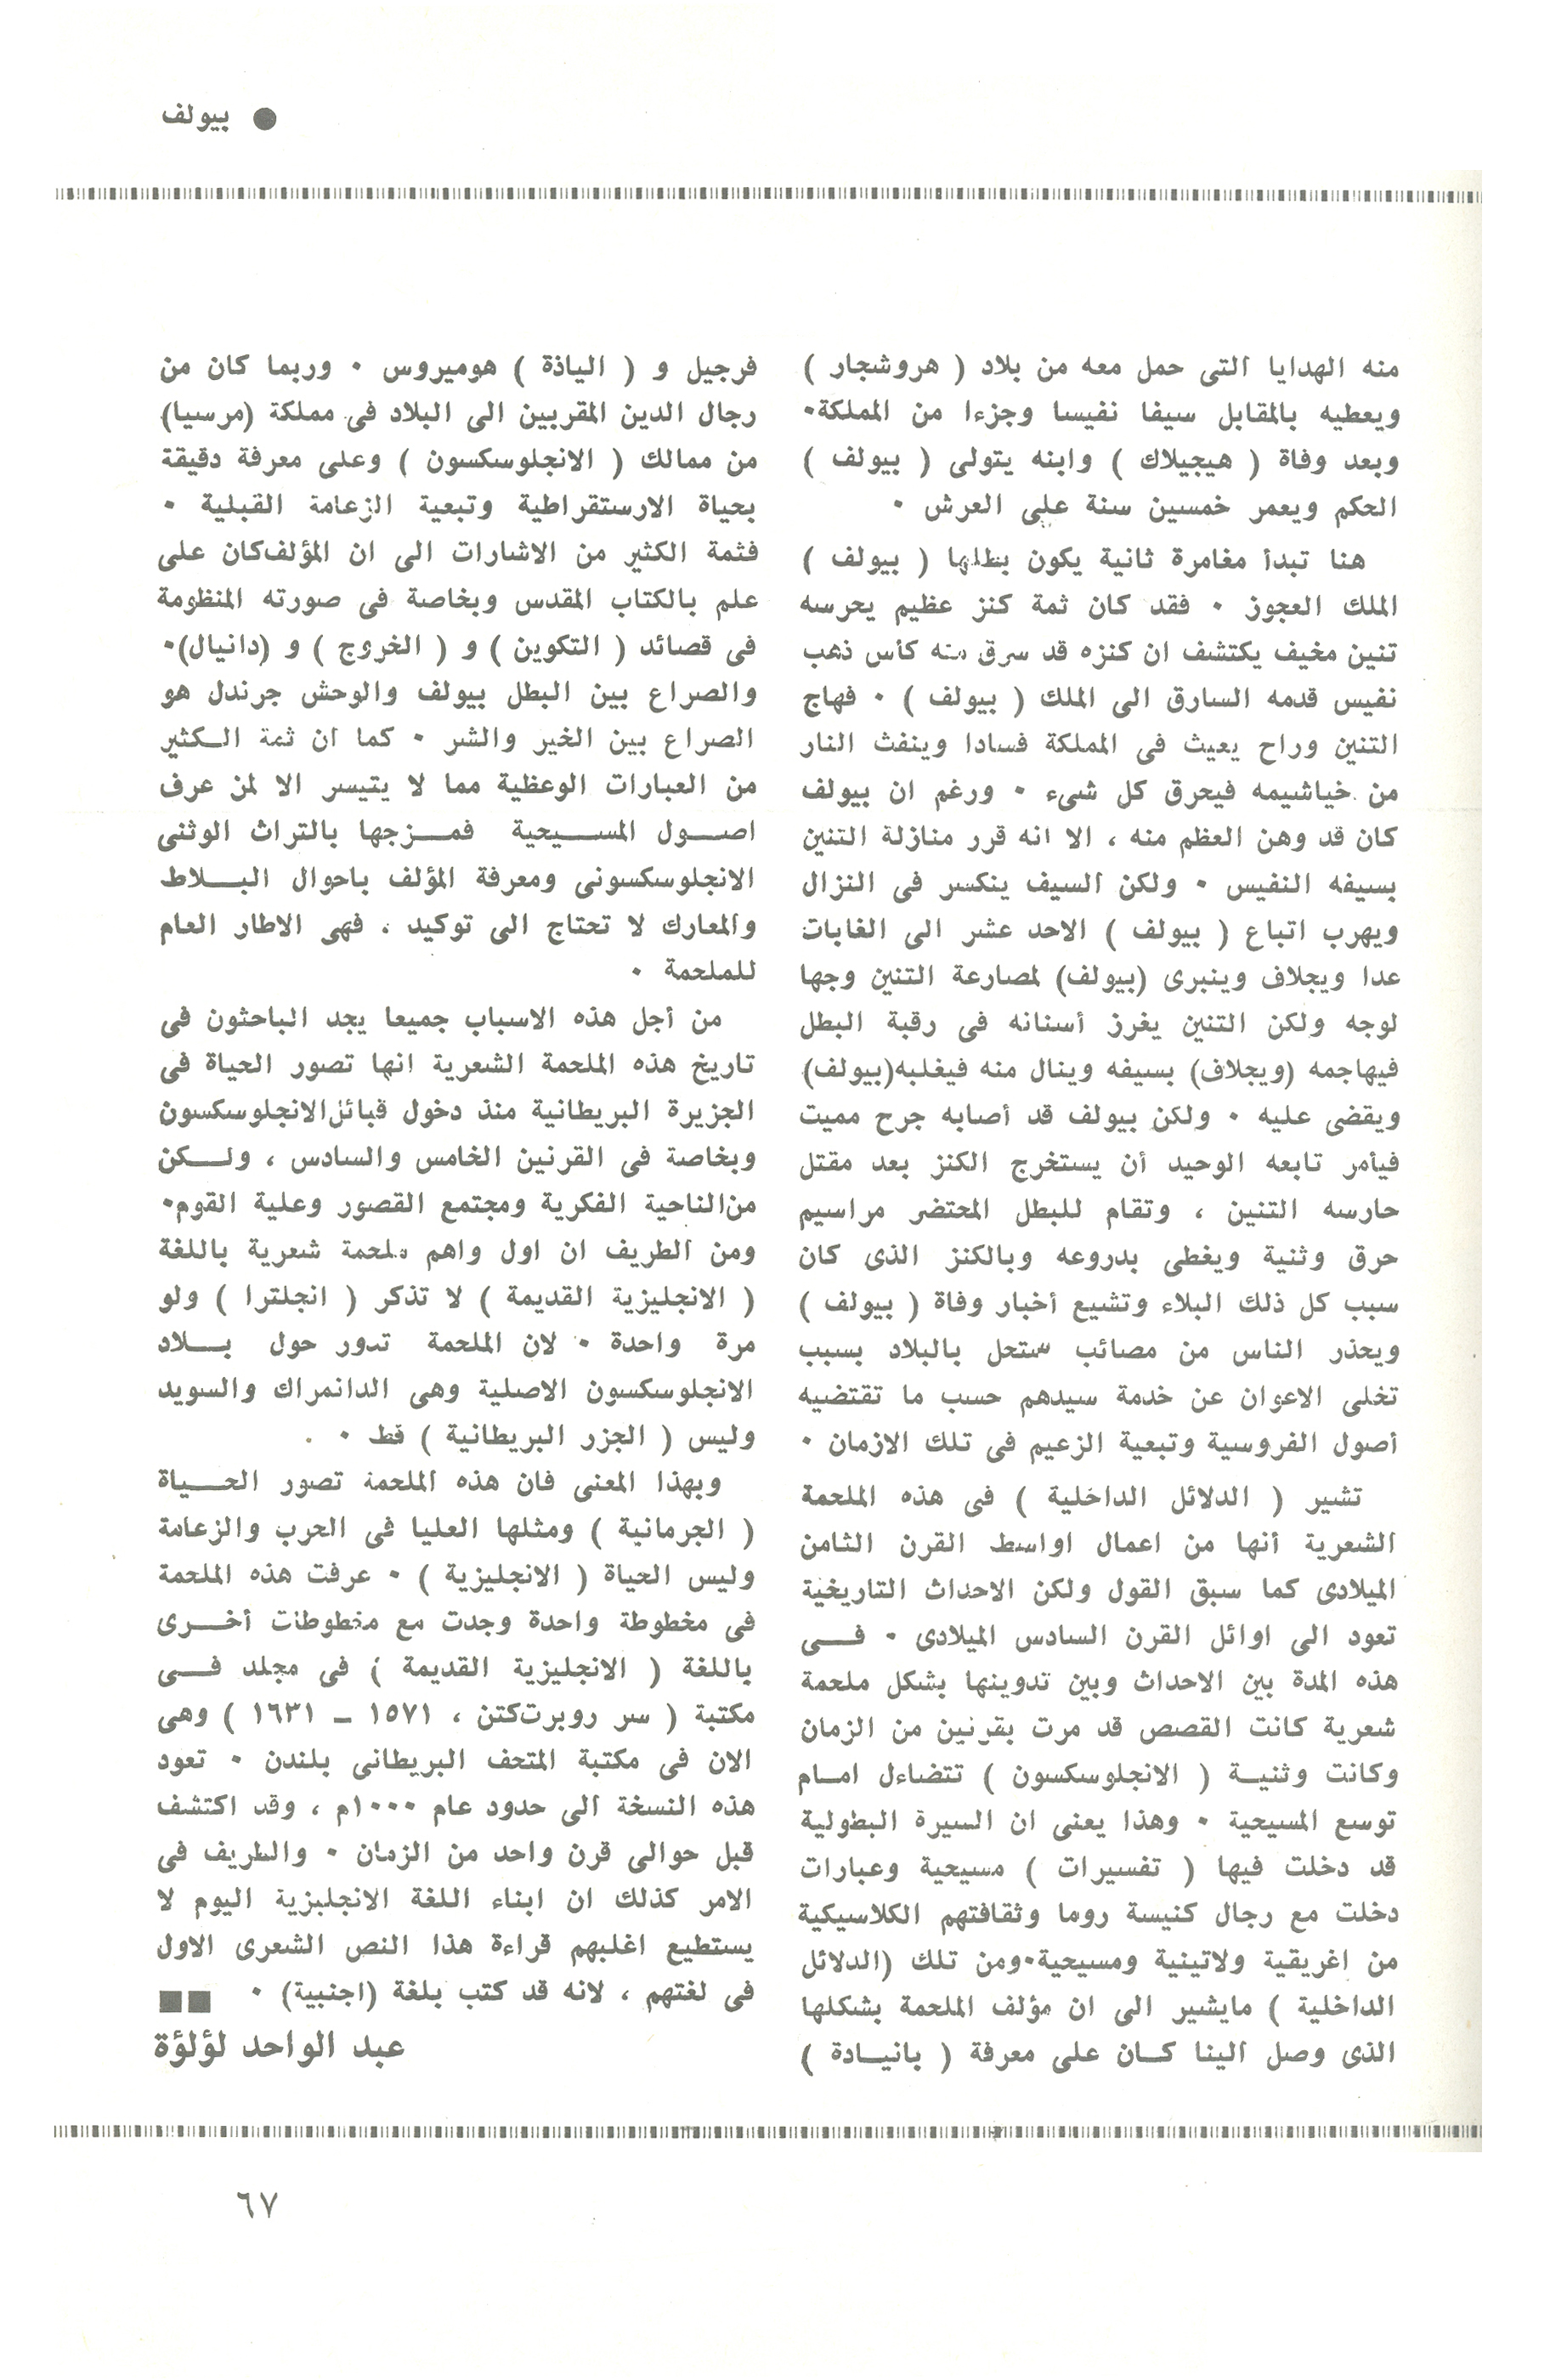 ● بيولف
منه الهدايا التى حمل معه من بلاد ( هروشجار )
ويعطيه بالمقابل سيفا نفيسا وجزءا من المملكة٠
وبعد وفاة ( هيجيلاك ) وابنه يتولى ( بيولف )
الحكم ويعمر خمسين سنة على العرش ٠
هنا تبدأ مغامرة ثانية يكون بطلها ( بيولف )
الملك العجوز ٠ فقد كان ثمة كنز عظيم يحرسه
تنين مخيف يكتشف ان كنزه قد سرق منه كأس ذهب
نفيس قدمه السارق الى الملك ( بيولف ) ٠ فهاج
التنين وراح يعيث فى المملكة فسادا وينفث النار
من خياشيمه فيحرق كل شىء ٠ ورغم ان بيولف
كان قد وهن العظم منه ، الا انه قرر منازلة التنين
بسيفه النفيس ٠ ولكن السيف ينكسر فى النزال
ويهرب اتباع ( بيولف ) الاحد عشر الى الغابات
عدا ويجلاف وينبرى (بيولف) لمصارعة التنين وجها
لوجه ولكن التنين يغرز أسنانه فى رقبة البطل
فيهاجمه (ويجلاف) بسيفه وينال منه فيغلبه(بيولف)
ويقضى عليه ٠ ولكن بيولف قد أصابه جرح مميت
فيأمر تابعه الوحيد أن يستخرج الكنز بعد مقتل
حارسه التنين ، وتقام للبطل المحتضر مراسيم
حرق وثنية ويغطى بدروعه وبالكنز الذى كان
سبب كل ذلك البلاء وتشيع أخبار وفاة ( بيولف )
ويحذر الناس من مصائب ستحل بالبلاد بسبب
تخلى الاعوان عن خدمة سيدهم حسب ما تقتضيه
أصول الفروسية وتبعية الزعيم فى تلك الازمان ٠
تشير ( الدلائل الداخلية ) فى هذه الملحمة
الشعرية أنها من اعمال اواسط القرن الثامن
الميلادى كما سبق القول ولكن الاحداث التاريخية
تعود الى اوائل القرن السادس الميلادى ٠ فــى
هذه المدة بين الاحداث وبين تدوينها بشكل ملحمة
شعرية كانت القصص قد مرت بقرنين من الزمان
وكانت وثنيـة ( الانجلوسكسون ) تتضاءل امـام
توسع المسيحية ٠ وهذا يعنى ان السيرة البطولية
قد دخلت فيها ( تفسيرات ) مسيحية وعبارات
دخلت مع رجال كنيسة روما وثقافتهم الكلاسيكية
من اغريقية ولاتينية ومسيحية٠ومن تلك (الدلائل
الداخلية ) مايشير الى ان مؤلف الملحمة بشكلها
الذى وصل الينا كـان على معرفة ( بانيـادة )
فرجيل و ( الياذة ) هوميروس ٠ وربما كان من
رجال الدين المقربين الى البلاد فى مملكة (مرسيا)
من ممالك ( الانجلوسكسون ) وعلى معرفة دقيقة
بحياة الارستقراطية وتبعية الزعامة القبلية ٠
فثمة الكثير من الاشارات الى ان المؤلف كان على
علم بالكتاب المقدس وبخاصة فى صورته المنظومة
فى قصائد ( التكوين ) و ( الخروج ) و (دانيال)٠
والصراع بين البطل بيولف والوحش جرندل هو
الصراع بين الخير والشر ٠ كما ان ثمة الـكثير
من العبارات الوعظية مما لا يتيسر الا لمن عرف
اصــول المســيحية فمــزجها بالتراث الوثنى
الانجلوسكسونى ومعرفة المؤلف باحوال البــلاط
والمعارك لا تحتاج الى توكيد ، فهى الاطار العام
للملحمة ٠
من أجل هذه الاسباب جميعا يجد الباحثون فى
تاريخ هذه الملحمة الشعرية انها تصور الحياة فى
الجزيرة البريطانية منذ دخول قبائل الانجلوسكسون
وبخاصة فى القرنين الخامس والسادس ، ولــكن
من الناحية الفكرية ومجتمع القصور وعلية القوم٠
ومن الطريف ان اول واهم ملحمة شعرية باللغة
( الانجليزية القديمة ) لا تذكر ( انجلترا ) ولو
مرة واحدة ٠ لان الملحمة تدور حول بــلاد
الانجلوسكسون الاصلية وهى الدانمراك والسويد
وليس ( الجزر البريطانية ) قط ٠
وبهذا المعنى فان هذه الملحمة تصور الحــياة
( الجرمانية ) ومثلها العليا فى الحرب والزعامة
وليس الحياة ( الانجليزية ) ٠ عرفت هذه الملحمة
فى مخطوطة واحدة وجدت مع مخطوطات أخــرى
باللغة ( الانجليزية القديمة ) فى مجلد فــى
مكتبة ( سر روبرت كتن ، ١٥٧١ ـ ١٦٣١ ) وهى
الان فى مكتبة المتحف البريطانى بلندن ٠ تعود
هذه النسخة الى حدود عام ١٠٠٠م ، وقد اكتشف
قبل حوالى قرن واحد من الزمان ٠ والطريف فى
الامر كذلك ان ابناء اللغة الانجليزية اليوم لا
يستطيع اغلبهم قراءة هذا النص الشعرى الاول
فى لغتهم ، لانه قد كتب بلغة (اجنبية) ٠ ■■
عبد الواحد لؤلؤة
٦٧